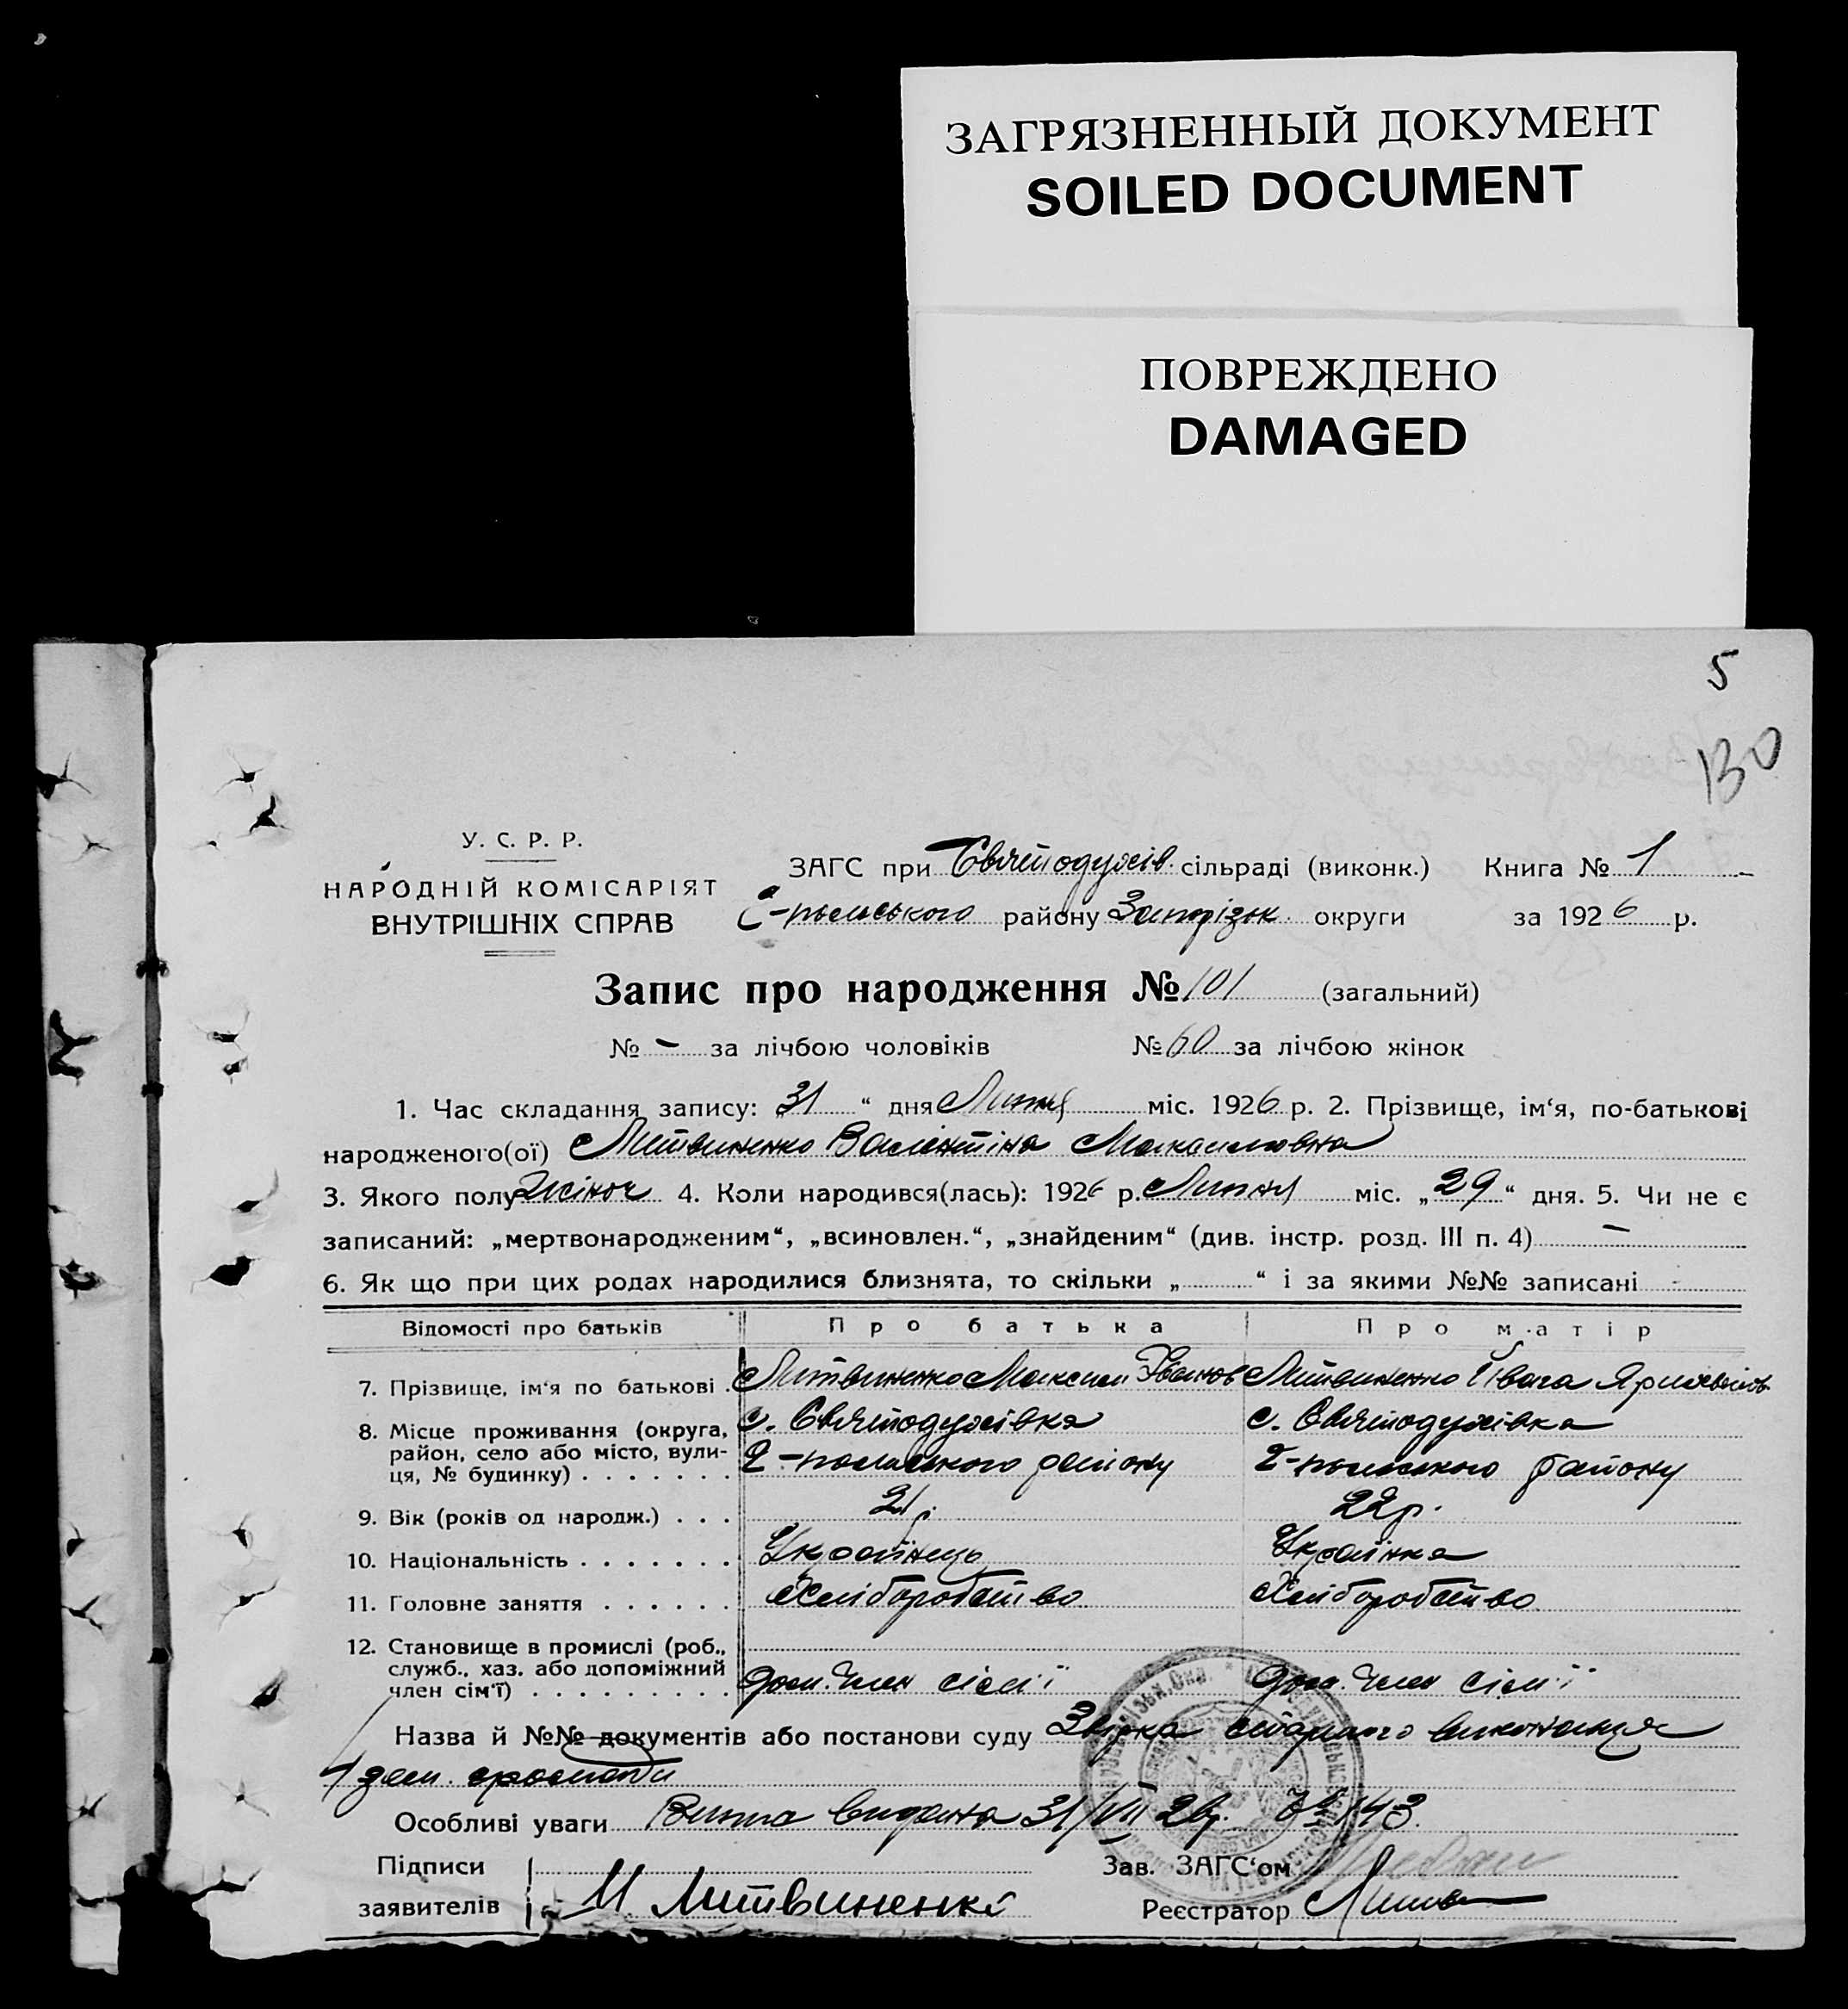 ЗАГРЯЗНЕННЫЙ ДОКУМЕНТ
SOILED DOCUMENT
ПОВРЕЖДЕНО
DAMAGED
5
130
У. С. Р. Р.
НАРОДНІЙ КОМІСАРІЯТ
ВНУТРІШНІХ СПРАВ
ЗАГС при Святодухів. сільраді (виконк.) Книга № 1
району Запорізьк. округи за 1926 р.
Запис про народження № 101 (загальний)
№ - за лічбою чоловіків № 60 за лічбою жінок
1. Час складання запису: „31“ дня Липня міс. 1926 р. 2. Прізвище, ім‘я, по-батькові
народженого(ої) Литвиненко Валентіна Максимовна
3. Якого полу Жіноч 4. Коли народився(лась): 1926 р. Липня міс. „29“ дня. 5. Чи не є
записаний: „мертвонародженим“, „всиновлен.“, „знайденим“ (див. інстр. розд. III п. 4) —
6. Як що при цих родах народилися близнята, то скільки „ “ і за якими №№ записані -
Відомості про батьків Про батька Про матір
7. Прізвище, ім‘я по батькові . Литвиненко Максим Іванов Литвиненко
8. Місце проживання (округа, с. Святодухівка с. Святодухівка
район, село або місто, вули-
ця, № будинку) . . . . . . . району району
9. Вік (років од народж.) . . . 21 р. 22 р.
10. Національність . . . . . . . Українець Українка
11. Головне заняття . . . . . . Хліборобство Хліборобство
12. Становище в промислі (роб.,
служб., хаз. або допоміжний
член сім‘ї) . . . . . . . . . доп. член сім'ї доп. член сім'ї
Назва й №№ документів або постанови суду старшого виконавця
зем. громади
Особливі уваги видана 31/VII 26 р. № 143.
Підписи Зав. ЗАГС‘ом
заявителів М Литвиненко Реєстратор